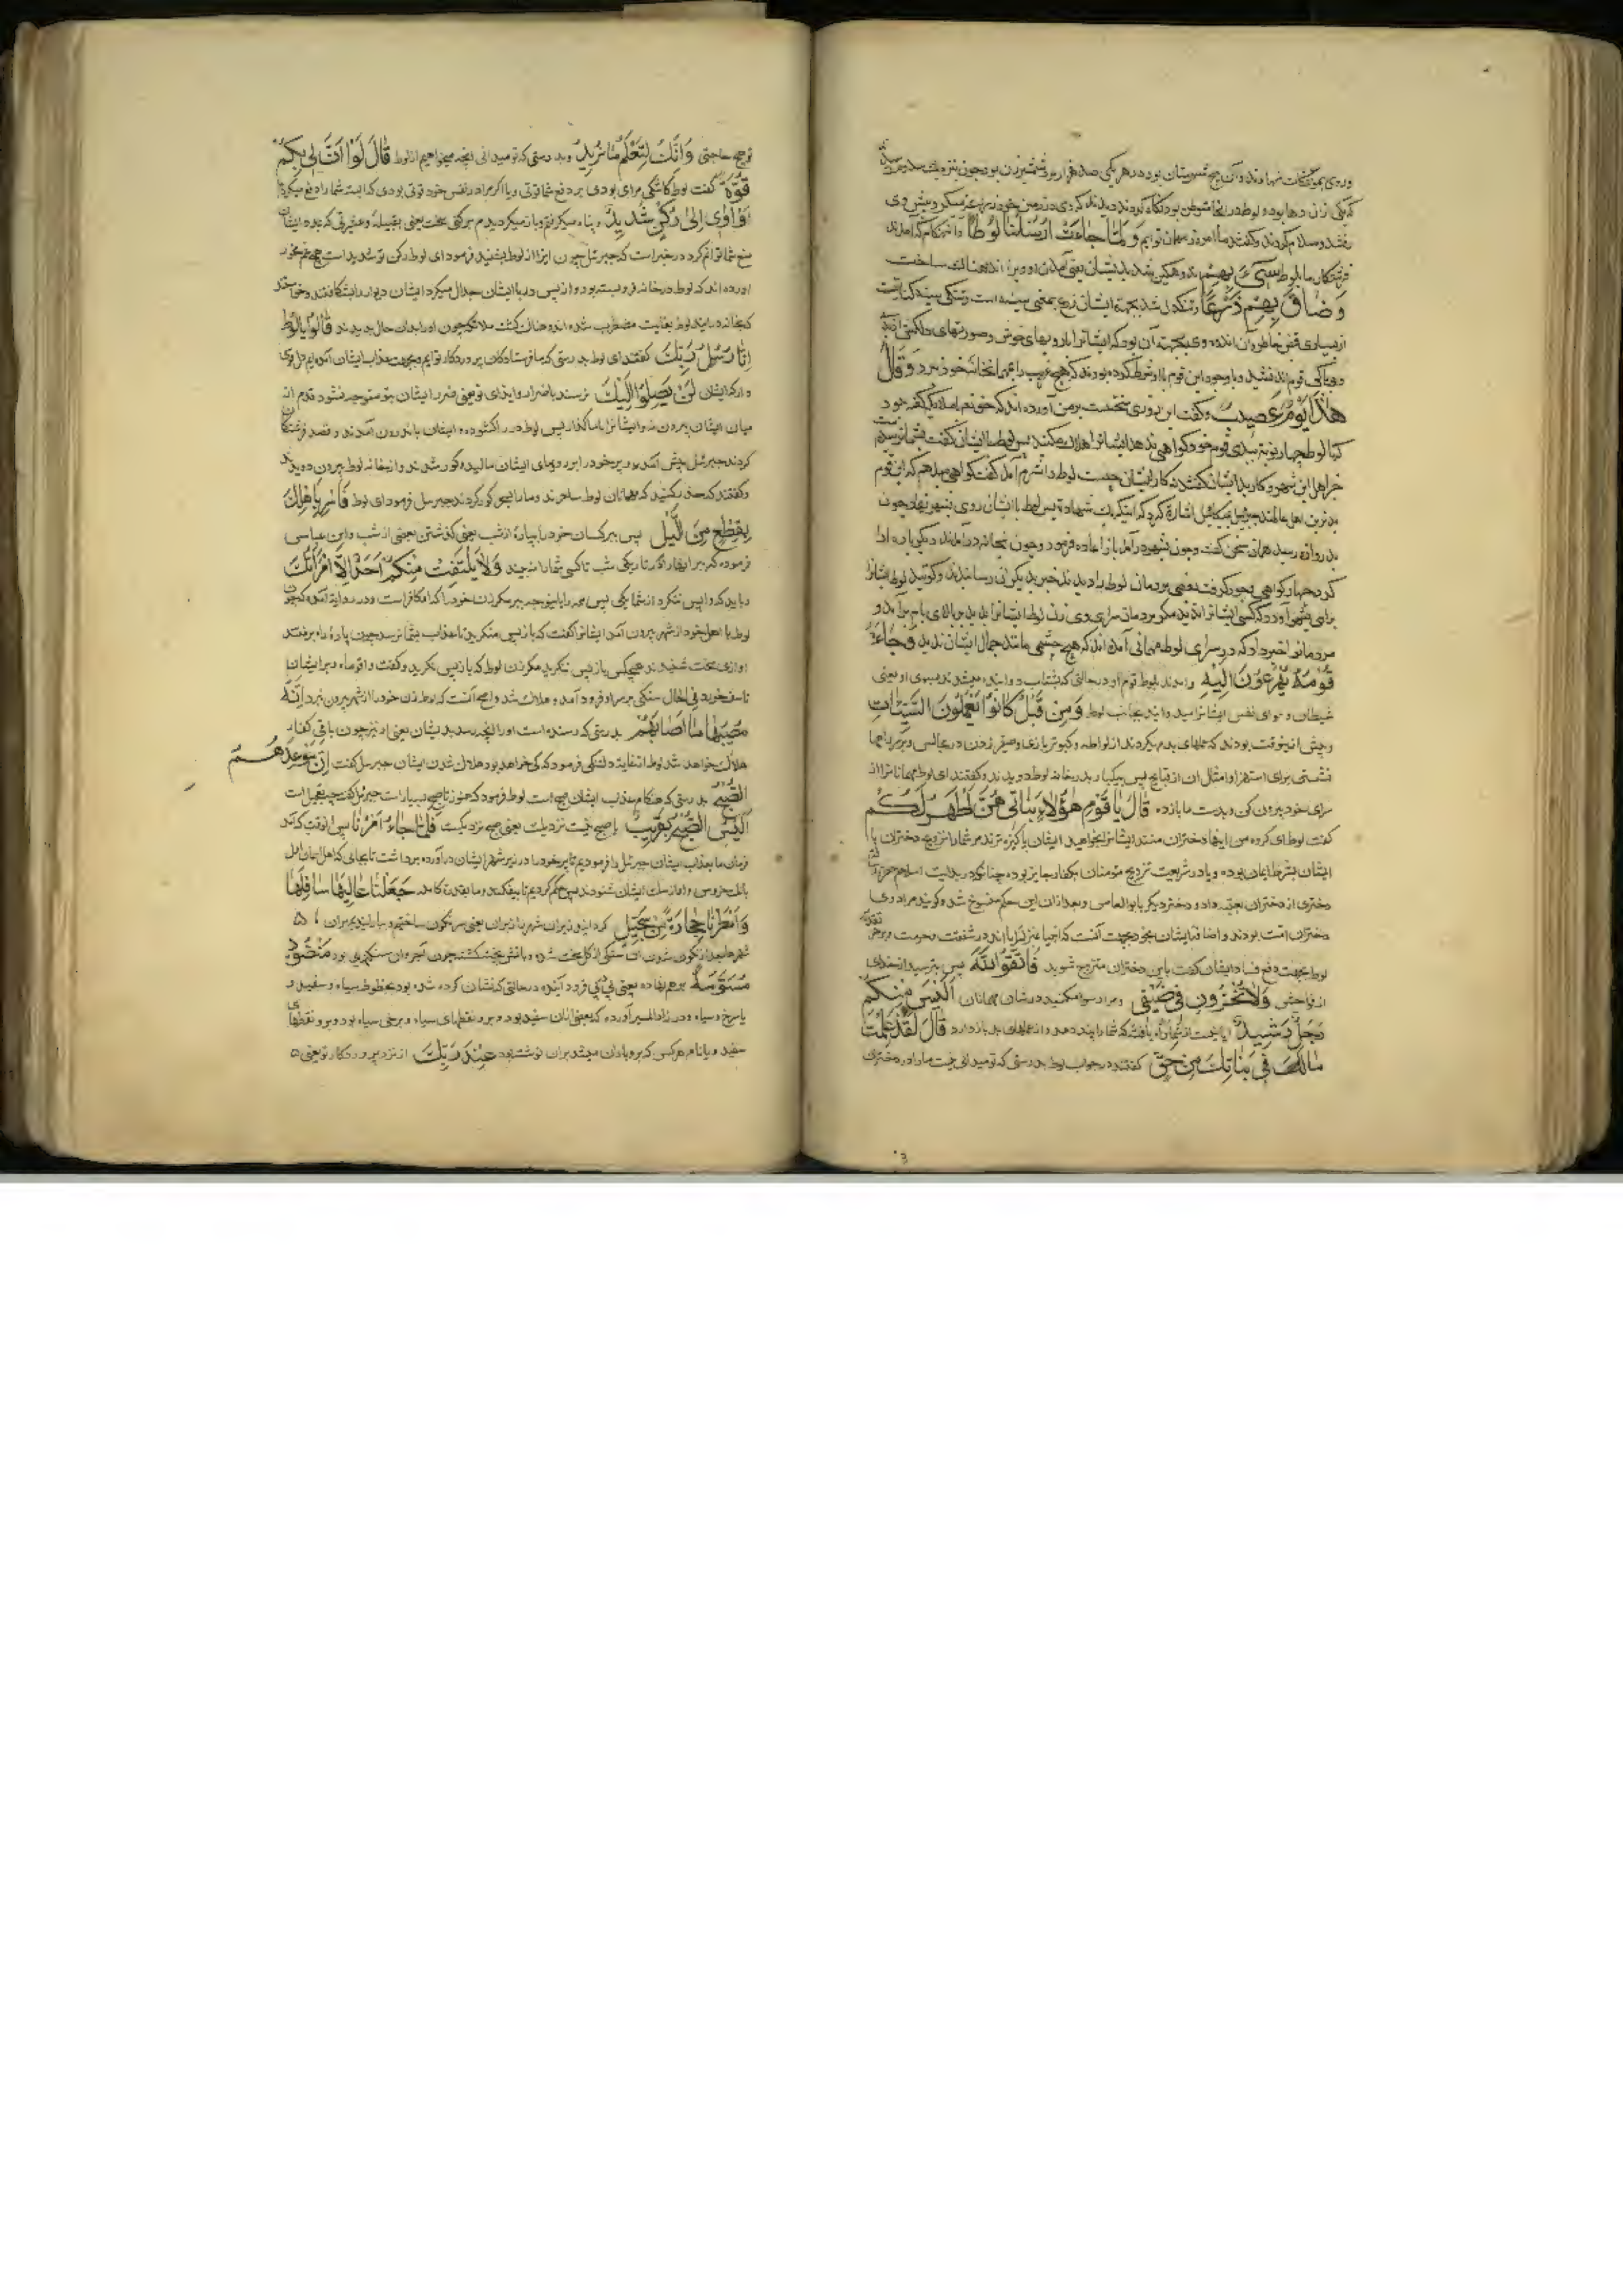 و روی بمؤتفکات نهادند و آن پنج شهرستان بوده در هر یکی صد هزار مرد شمشیرزن بود چون بنزدیک سدوم
که یکی از آن دهها بود و لوط در آنجا متوطن بود نگاه کردند دیدند که وی در زمین خود زراعت میکرد پیش وی
رفتند و سلام کردند و گفتند ما امروز مهمان توایم وَلَمَّا جَاءَتْ رُسُلُنَا لُوطًا و آنهنگام که آمدند
فرشتگان ما بلوط سِیءَ بِهِمْ اندوهگین شد بدیشان یعنی آمدن او ویرا اندهناک ساخت
وَضَاقَ بِهِمْ ذَرْعًا و تنگدل شد بجهة ایشان ذرع بمعنی سینه است و تنگی سینه کنایتست
از بسیاری قبض خاطر و آن اندوه وی بجهت آن بود که ایشانرا با رویهای خوش و صورتهای دلکش
و بیباکی قوم اندیشید و با وجود این قوم با او شرط کرده بودند که هیچ غریب را مهمان خانه خود نبرد وَقَالَ
هٰذَا یَوْمٌ عَصِیبٌ و گفت این روزی سختست بر من آورده اند که حق تعم با ملائکه گفته بود
که تا لوط چهار نوبت ببدی قوم خود گواهی ندهد ایشانرا هلاک مکنید پس لوط با ایشان گفت
خبر اهل این شهر و کار بد ایشان گفتند که کار ایشان چیست لوط را شرم آمد گفت گواهی میدهم که این قوم
بدترین اهل عالمند جبرئیل بمیکائیل اشارة کرد که اینک یک شهادة پس لوط با ایشان روی بشهر نهاد چون
بدروازه رسید همان سخن گفت و چون بشهر درآمد باز اعاده فرمود و چون بخانه درآمدند دیگر باره ادا
کرد چهار گواهی وجود گرفت بعضی مردمان لوط را دیدند خبر بدیگران رسانیدند و گویند لوط ایشانرا
مردمانرا خبر داد که در سرای لوط مهمانی آمده اند که هیچ چشمی مانند جمال ایشان ندید وَجَاءَهُ
قَوْمُهُ یُهْرَعُونَ اِلَیْهِ و آمدند بلوط قوم او در حالتی که بشتاب دوانیده میشدند بسوی او یعنی
شیطان و هوای نفس ایشانرا میدوانید بجانب لوط وَمِنْ قَبْلُ کَانُوا یَعْمَلُونَ السَّیِّئَاتِ
و پیش ازینوقت بودند که عملهای بد میکردند از لواطه و کبوتر بازی و صفیر زدن در مجالس و بر سر راهها
نشستن برای استهزا و امثال آن از قبایح پس بیکبار بدر خانه لوط دویدند و گفتند ای لوط مهمانانرا از
سرای خود بیرون کن و بدست ما بازده قَالَ یَا قَوْمِ هٰؤُلَاءِ بَنَاتِی هُنَّ اَطْهَرُ لَکُمْ
گفت لوط ای گروه من اینها دختران منند ایشانرا بخواهید ایشان پاکیزه ترند مر شما را تزویج دختران با
ایشان بشرط ایمان بوده و یا در شریعت تزویج مؤمنات بکفار جایز بوده چنانکه در بدایت اسلام
دختری از دختران بعتبه داد و دختر دیگر بابو العاص و بعد از آن این حکم منسوخ شد و گویند مراد وی
دختران امت بودند و اضافه ایشان بخود بجهت آنست که انبیا بمنزله پدر اند در شفقت و حرمت
لوط بجهت دفع فساد ایشان گفت باین دختران متزوج شوید فَاتَّقُوا اللّٰهَ پس بترسید از خدای
از فواحش وَلَا تُخْزُونِ فِی ضَیْفِی و مرا رسوا مکنید در شان مهمانان اَلَیْسَ مِنْکُمْ
رَجُلٌ رَشِیدٌ آیا نیست از شما راه یافته که شما را پند دهد و از عملهای بد باز دارد قَالَ لَقَدْ عَلِمْتَ
مَا لَنَا فِی بَنَاتِکَ مِنْ حَقٍّ گفتند در جواب لوط بدرستی که تو میدانی نیست ما را در دختران
تو هیچ حاجتی وَاِنَّکَ لَتَعْلَمُ مَا نُرِیدُ و بدرستی که تو میدانی آنچه میخواهیم از لواط قَالَ لَوْ اَنَّ لِی بِکُمْ
قُوَّةً گفت لوط کاشکی مرا بودی بر دفع شما قوتی و یا اگر مرا در نفس خود قوتی بودی که البته شما را دفع میکردم
اَوْ اٰوِی اِلٰی رُکْنٍ شَدِیدٍ و پناه میگرفتم و یا باز میگردیدم برکنی سخت یعنی بقبیله و عشیرتی که بمدد ایشان
منع شما توانم کرد در خبر است که جبرئیل چون اینرا از لوط بشنید فرمود ای لوط رکن تو شدید است هیچ غم مخور
آورده اند که لوط در خانه فرو بسته بود و از پس در با ایشان جدال میکرد ایشان دیوار را بشکافتند و خواستند
که بخانه درآیند لوط بغایت مضطرب شده اندوهناک گشت ملائکه چون او را بدان حال بدیدند قَالُوا یَا لُوطُ
اِنَّا رُسُلُ رَبِّکَ گفتند ای لوط بدرستی که ما فرستادگان پروردگار توایم و بجهت عذاب ایشان آمده ایم دل قوی
دار که ایشان لَنْ یَصِلُوا اِلَیْکَ نرسند باضرار و ایذای تو یعنی ضرر ایشان بتو متوجه نشود قدم از
میان ایشان بیرون نه و ایشانرا با ما گذار پس لوط در را گشوده و ایشان باندرون آمدند و قصد فرشتگان
کردند جبرئیل پیش آمد و پر خود را بر رویهای ایشان مالید و کور شدند و از خانه لوط بیرون دویدند
و گفتند که حذر بکنید که مهمانان لوط ساحرند و ما را بسحر کور کردند جبرئیل فرمود ای لوط فَاَسْرِ بِاَهْلِکَ
بِقِطْعٍ مِنَ اللَّیْلِ پس ببر کسان خود را بپارهٔ از شب یعنی گذشتن بعضی از شب و ابن عباس
فرموده که ببر ایشانرا در تاریکی شب تا کسی شما را نبیند وَلَا یَلْتَفِتْ مِنْکُمْ اَحَدٌ اِلَّا امْرَاَتَکَ
و باید که واپس ننگرد از شما یکی پس همه را با خود ببر مگر زن خود را که او کافر است و در روایة آمده که چون
لوط با اهل خود از شهر بیرون آمد ایشانرا گفت که باز پس منگرید تا عذاب بشما نرسد چون پارهٔ راه برفتند
آوازی سخت شنیدند هیچکس باز پس ننگرید مگر زن لوط که باز پس نگرید و گفت وا قوماه و بر ایشان
تاسف خورد فی الحال سنگی بر سر او فرود آمد و هلاک شد و اصح آنست که لوط زن خود را از شهر بیرون نبرد اِنَّهُ
مُصِیبُهَا مَا اَصَابَهُمْ بدرستی که رسنده است او را آنچه رسد بدیشان یعنی او نیز چون باقی کفار
هلاک خواهد شد لوط از غایة دلتنگی فرمود که کی خواهد بود هلاک شدن ایشان جبرئیل گفت اِنَّ مَوْعِدَهُمُ
الصُّبْحُ بدرستی که هنگام عذاب ایشان صبح است لوط فرمود که هنوز تا صبح بسیار است جبرئیل گفت چه تعجیل است
اَلَیْسَ الصُّبْحُ بِقَرِیبٍ آیا صبح نیست نزدیک یعنی صبح نزدیکست فَلَمَّا جَاءَ اَمْرُنَا پس آنوقت که آمد
فرمان ما بعذاب ایشان جبرئیل را فرمودیم تا پر خود را در زیر شهر ایشان درآورده برداشت تا بجائی که اهل آسمان
بانک خروس و آواز سگ ایشان شنودند پس حکم کردیم تا بیفکند و ما بقدرت کامله جَعَلْنَا عَالِیَهَا سَافِلَهَا
وَاَمْطَرْنَا حِجَارَةً مِنْ سِجِّیلٍ گردانیدیم زبران شهر را زیران یعنی سرنگون ساختیم و ببارانیدیم بران
شهرها بعد از نگون شدن آن سنگی از گل سخت شده و بآتش پخته گشته چون آجر و آن سنگریزه بود مَنْضُودٍ
مُسَوَّمَةً برهم نهاده یعنی پی در پی فرود آینده در حالتی که نشان کرده شده بود بخطوط سیاه و سفید و
یا سرخ و سیاه و در زاد المسیر آورده که بعضی از آن سفید بود و برو نقطهای سیاه و برخی سیاه بود و برو نقطهای
سفید و یا نام هر کس که برو باران میشد بران نوشته بود عِنْدَ رَبِّکَ از نزد پروردگار تو یعنی